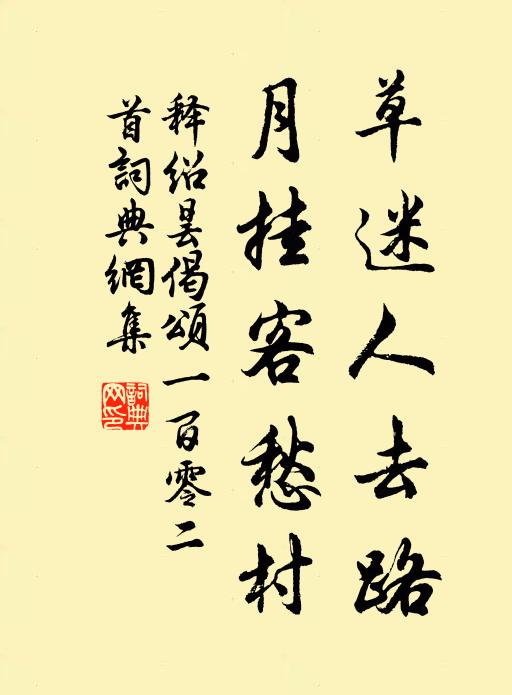 草迷人去路
月挂客愁村
释绍昙偈頌一百零二
首詞典網集
詞典
网印